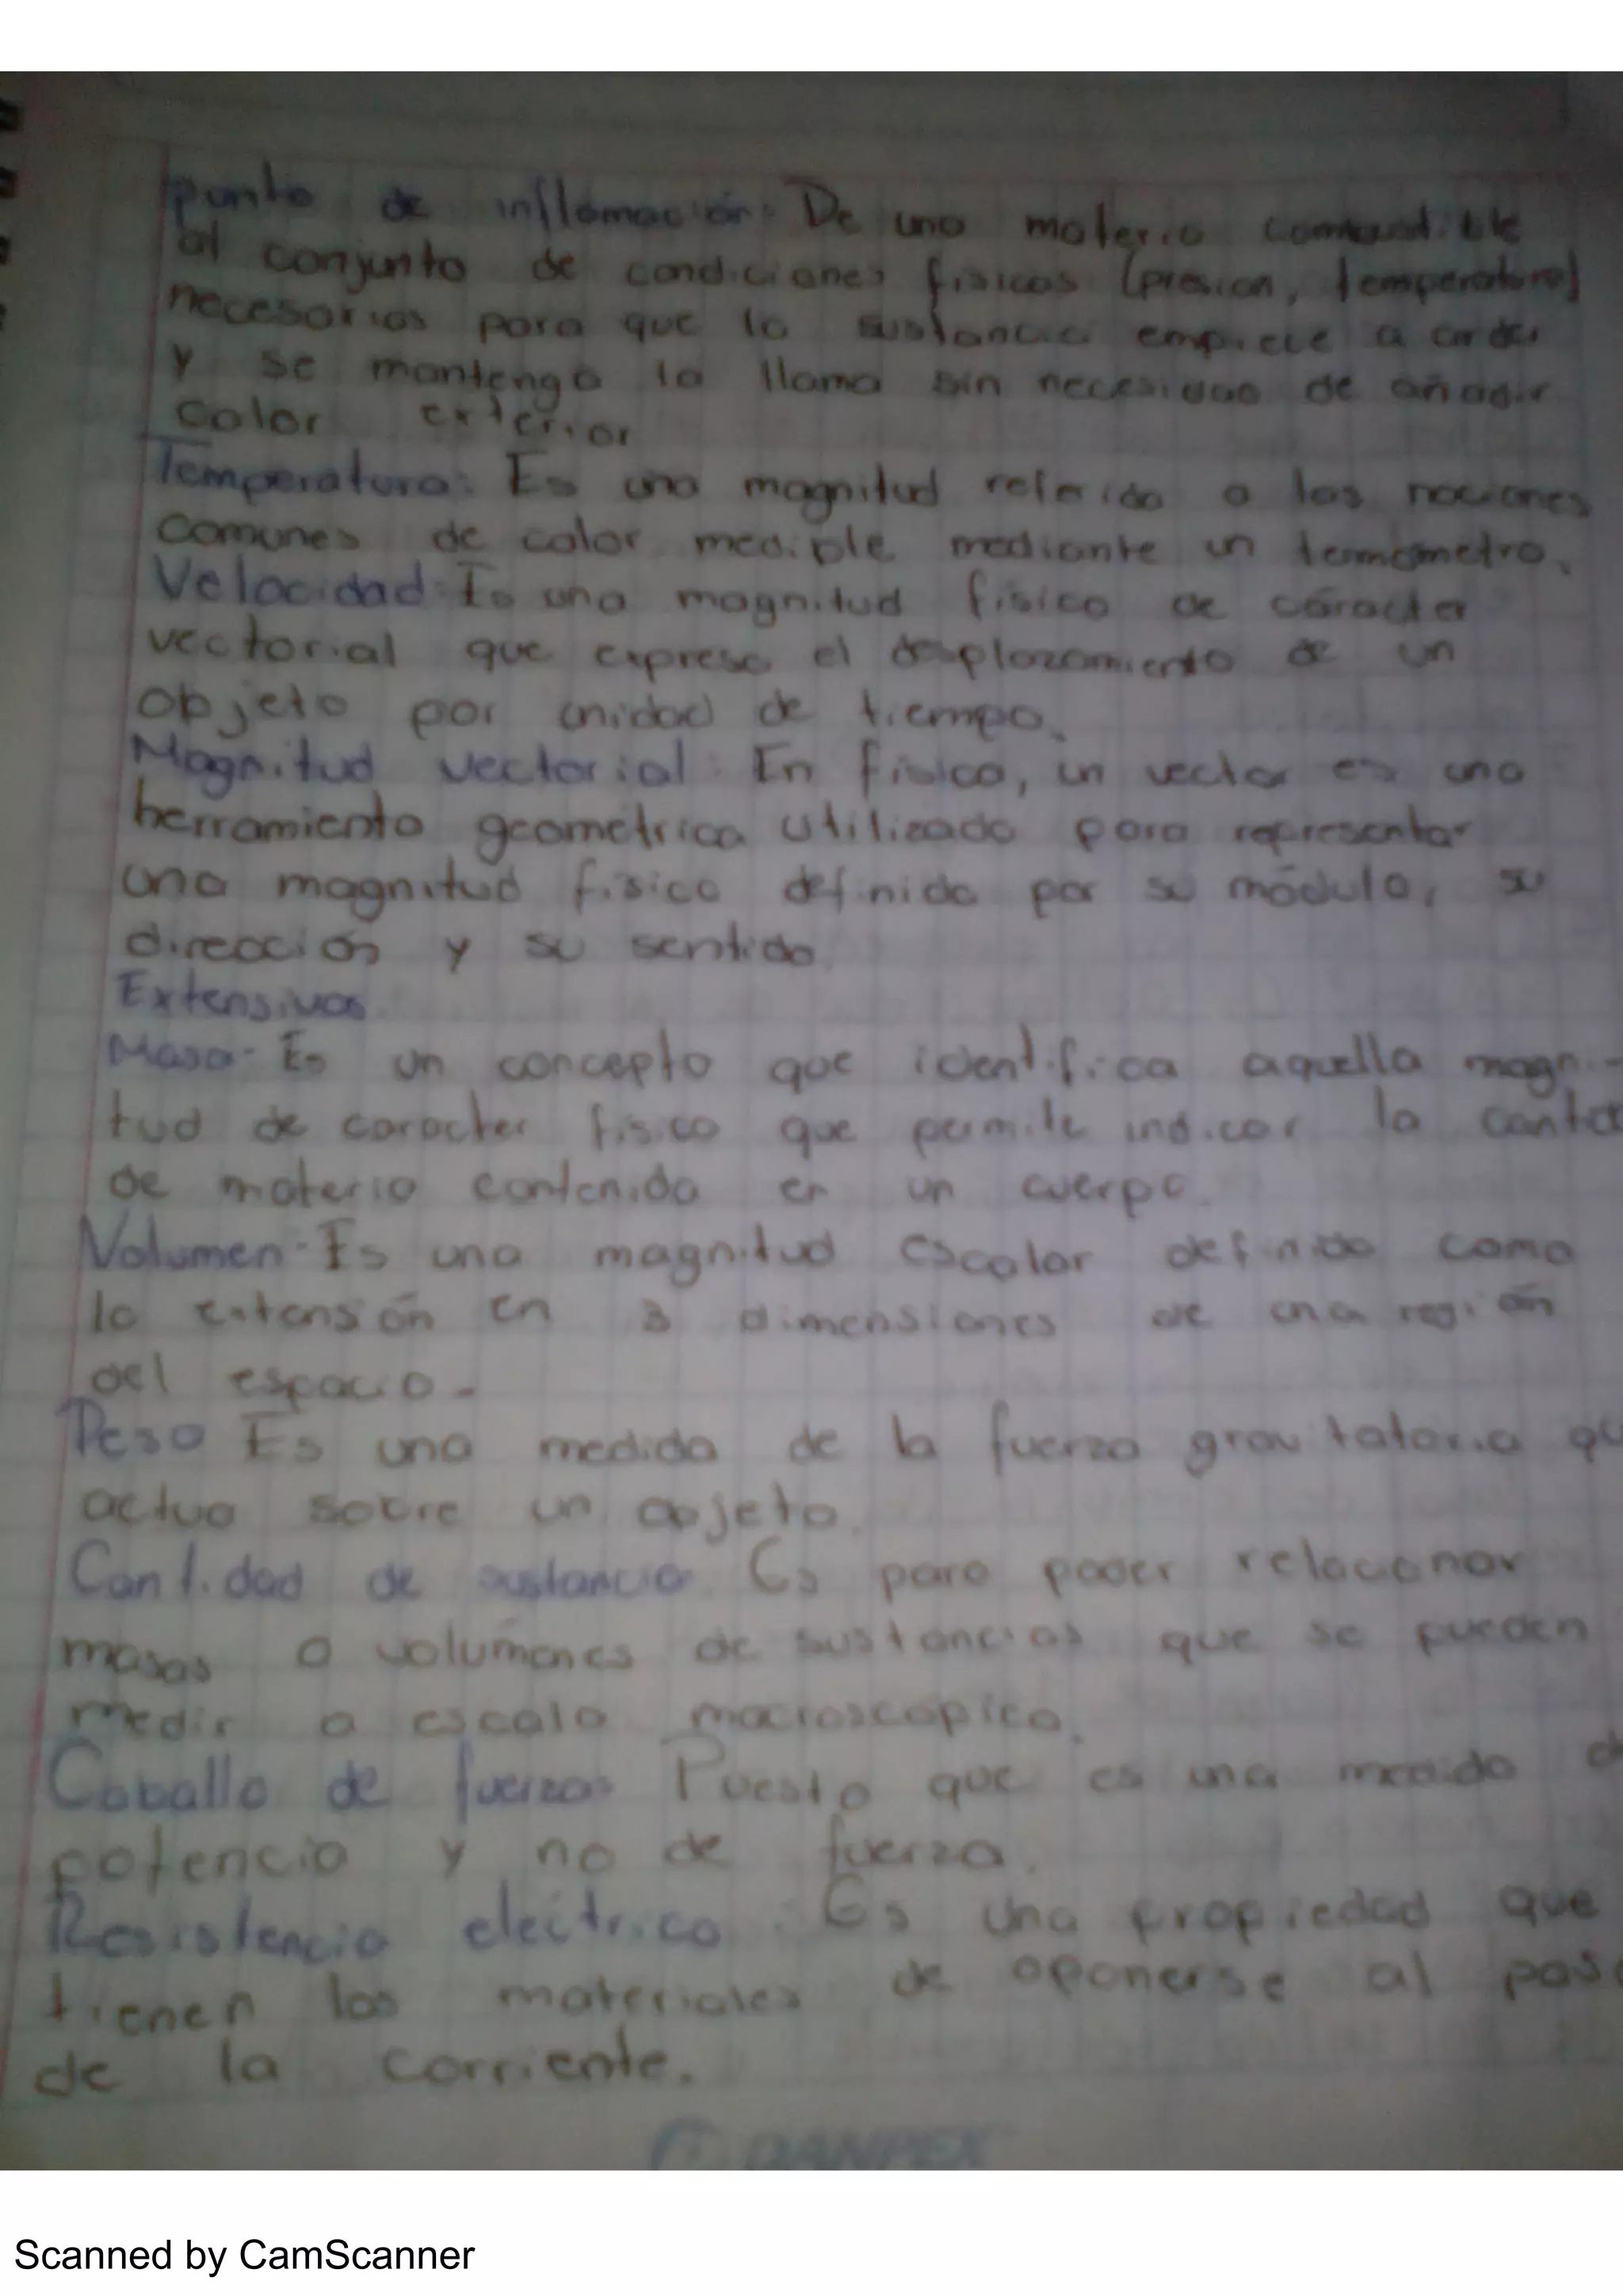 punto de inflamación: De una materia combustible
al conjunto de condiciones fisicas (presion, temperatura)
necesarias para que la sustancia empiece a arder
y se mantenga la llama sin necesidad de añadir
calor exterior
Temperatura: Es una magnitud referida a las nociones
comunes de calor medible mediante un termómetro.
Velocidad: Es una magnitud fisica de cáracter
vectorial que expresa el desplazamiento de un
objeto por unidad de tiempo.
Magnitud vectorial: En fisica, un vector es una
herramienta geometrica utilizada para representar
una magnitud fisica definida por su módulo, su
dirección y su sentido.
Extensivas
Masa- Es un concepto que identifica aquella magni-
tud de caracter fisico que permite indicar la cantid
de materia contenida en un cuerpo.
Volumen- Es una magnitud escalar definida como
la extensión en 3 dimensiones de una región
del espacio.
Peso Es una medida de la fuerza gravitatoria qu
actua sobre un objeto.
Cantidad de sustancia Es para poder relacionar
masas o volúmenes de sustancias que se pueden
medir a escala macroscopica.
Caballo de fuerza: Puesto que es una medida d
potencia y no de fuerza.
Resistencia electrica: Es una propiedad que
tienen los materiales de oponerse al paso
de la corriente.
DANPEX
Scanned by CamScanner